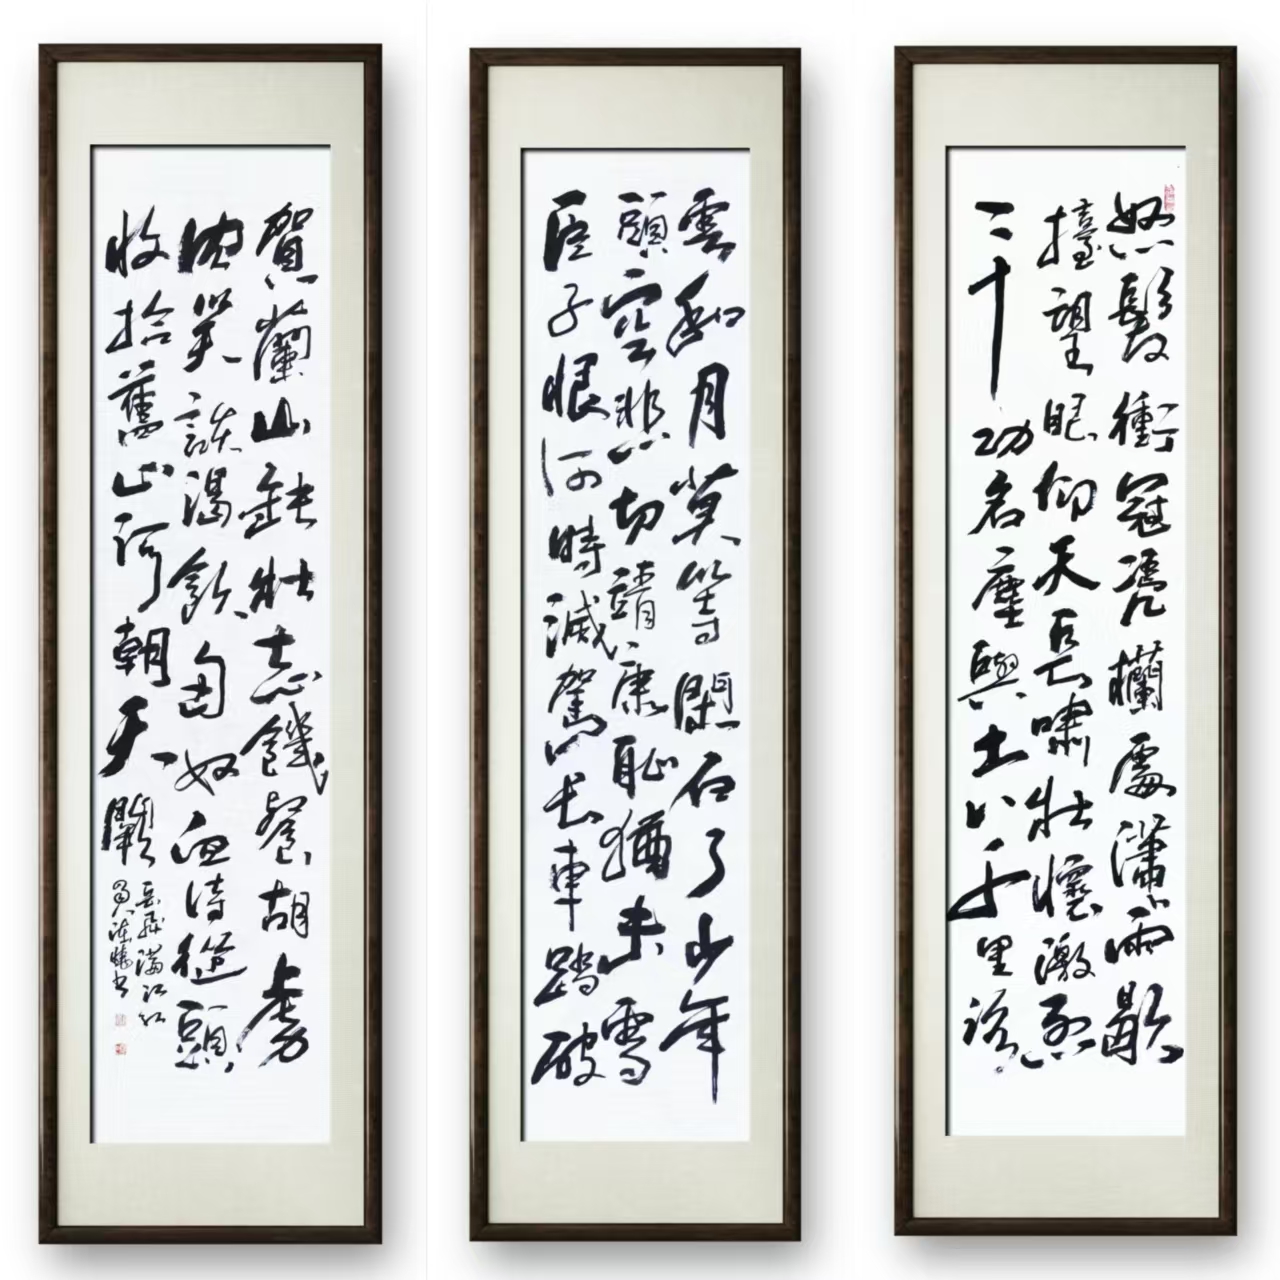 怒髮衝冠凴欄處瀟瀟雨歇
擡望眼仰天長嘯壯懷激烈
三十功名塵與土八千里路
雲和月莫等閑白了少年
頭空悲切靖康恥猶未雪
臣子恨何時滅駕長車踏破
賀蘭山缺壯志饑餐胡虜
肉笑談渴飲匈奴血待從頭
收拾舊山河朝天闕
岳飛滿江紅
書